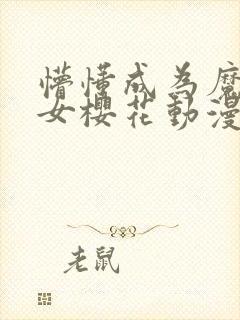 懵懂成为魔
女樱花動漫
老鼠